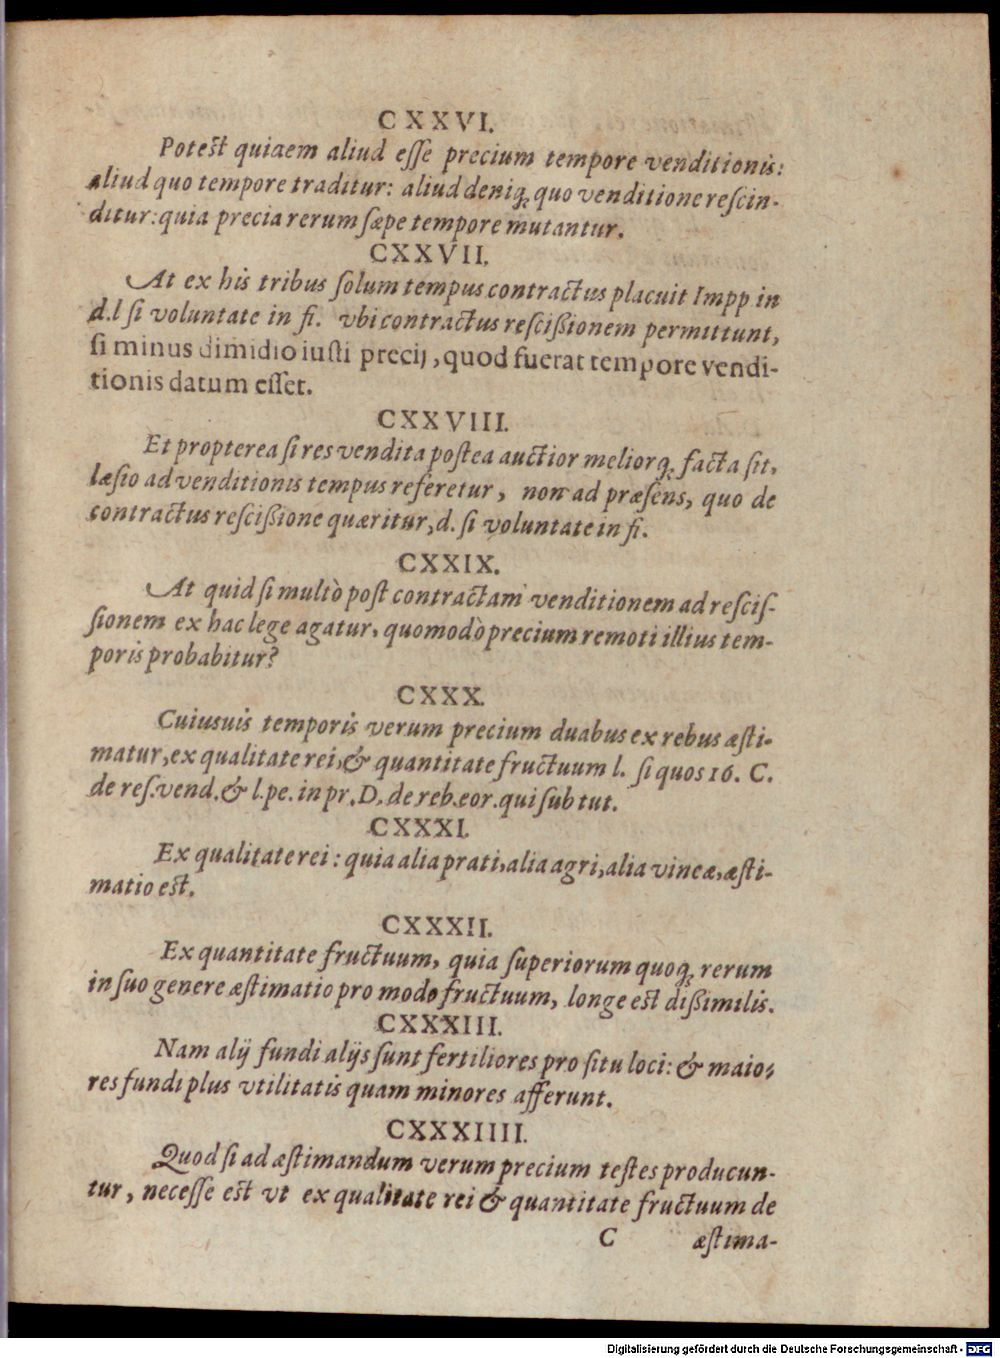 CXXVI.
Potest quiaem aliud eſſe precium tempore venditionis:
aliud quo tempore traditur: aliud deniq; quo venditione reſcin-
ditur: quia precia rerum ſæpe tempore mutantur.
CXXVII.
At ex his tribus ſolum tempus contractus placuit Impp. in
d.l ſi voluntate in fi. vbi contractus reſcißionem permittunt,
ſi minus dimidio iuſti precij, quod fuerat tempore vendi-
tionis datum eſſet.
CXXVIII.
Et propterea ſi res vendita poſtea auctior meliorq; facta ſit,
læſio ad venditionis tempus referetur, non ad præſens, quo de
contractus reſcißione quæritur, d. ſi voluntate in fi.
CXXIX.
At quid ſi multò poſt contractam venditionem ad reſciſ-
ſionem ex hac lege agatur, quomodò precium remoti illius tem-
poris probabitur?
CXXX.
Cuiusuis temporis verum precium duabus ex rebus æſti-
matur, ex qualitate rei, & quantitate fructuum l. ſi quos 16. C.
de reſ.vend. & l.pe. in pr. D. de reb.eor. qui ſub tut.
CXXXI.
Ex qualitate rei: quia alia prati, alia agri, alia vineæ, æſti-
matio eſt.
CXXXII.
Ex quantitate fructuum, quia ſuperiorum quoq; rerum
in ſuo genere æſtimatio pro modo fructuum, longe eſt dißimilis.
CXXXIII.
Nam alij fundi alijs ſunt fertiliores pro ſitu loci: & maio-
res fundi plus vtilitatis quam minores afferunt.
CXXXIIII.
Quod ſi ad æſtimandum verum precium teſtes producun-
tur, neceſſe eſt vt ex qualitate rei & quantitate fructuum de
C æſtima-
Digitalisierung gefördert durch die Deutsche Forschungsgemeinschaft - DFG